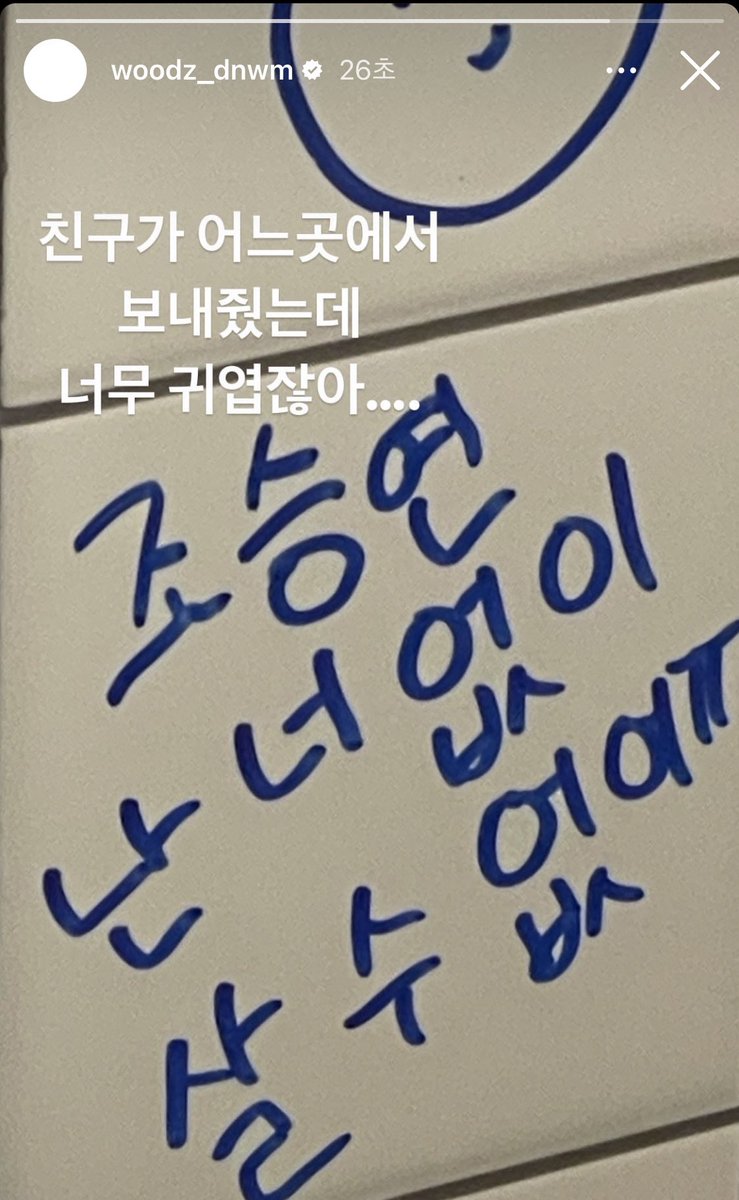 woodz_dnwm 26초
친구가 어느곳에서
보내줬는데
너무 귀엽잖아....
조승연
난 너 없이
잘 수 없어ㅠ